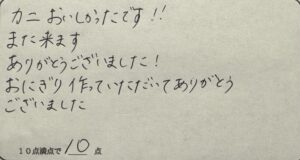 カニ おいしかったです!!
また来ます
ありがとうございました!
おにぎり作っていただいてありがとう
ございました
10点満点で 10 点